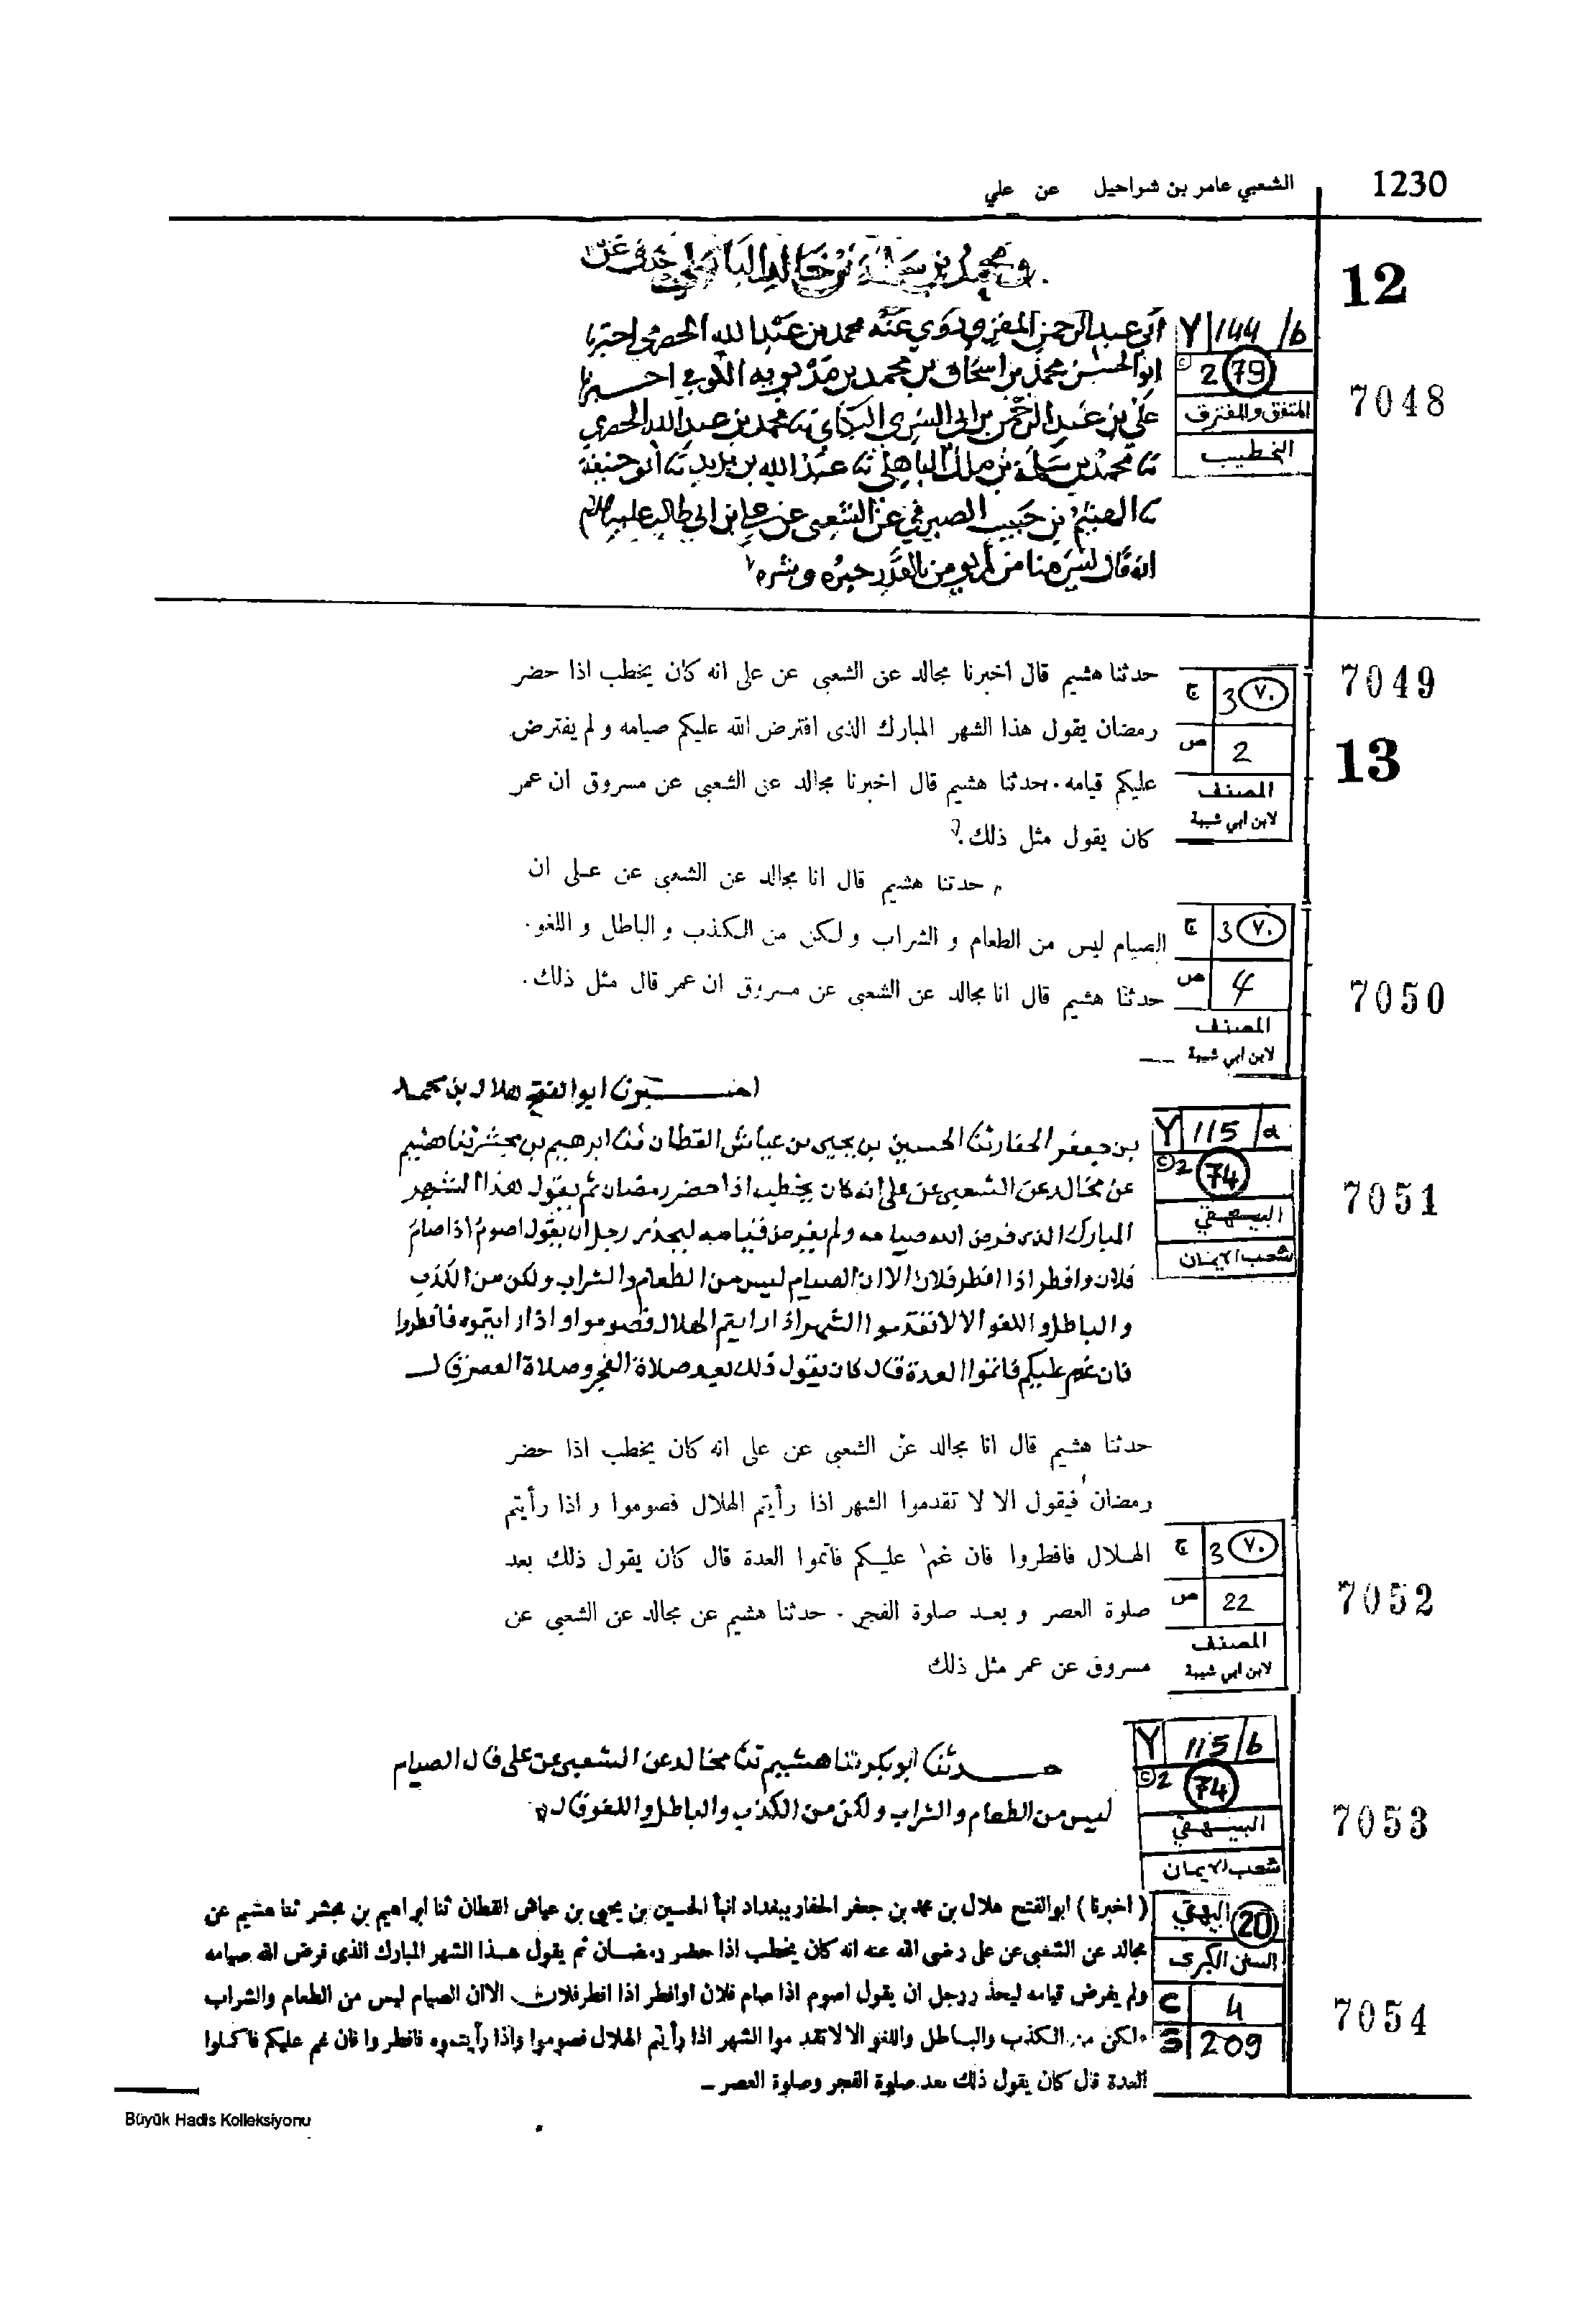 1230
الشعبي عامر بن شراحيل عن علي
12
ومحمد بن سلمة بن خالد الباهلي حدث عن
ابي عبد الرحمن المقرئ روى عنه محمد بن عبد الله الحضرمي اخبرنا
ابو الحسن محمد بن اسحاق بن محمد بن الكوفي اخبرنا
علي بن عبد الرحمن بن ابي السري البكائي ثنا محمد بن عبد الله الحضرمي
ثنا محمد بن سلمة بن مالك الباهلي ثنا عبد الله بن يزيد ثنا أبو حنيفة
ثنا الهيثم بن حبيب الصيرفي عن الشعبي عن علي بن ابي طالب عليه السلام
انه قال ليس منا من لم يؤمن بالقدر خيره وشره
Y 144/b
© 2 79
المتفق والمفترق
الخطيب
7048
حدثنا هشيم قال اخبرنا مجالد عن الشعبى عن على انه كان يخطب اذا حضر
رمضان يقول هذا الشهر المبارك الذى افترض الله عليكم صيامه و لم يفترض
عليكم قيامه. حدثنا هشيم قال اخبرنا مجالد عن الشعبى عن مسروق ان عمر
كان يقول مثل ذلك.
ج 3 ٧٠
ص 2
المصنف
لابن ابي شيبة
7049
13
حدثنا هشيم قال انا مجالد عن الشعبى عن عـلى ان
الصيام ليس من الطعام و الشراب و لكن من الكذب و الباطل و اللغو.
حدثنا هشيم قال انا مجالد عن الشعبى عن مسروق ان عمر قال مثل ذلك.
ج 3 ٧٠
ص 4
المصنف
لابن ابي شيبة
7050
اخبرنا ابو الفتح هلال بن محمد
بن جعفر الحفار ثنا الحسين بن يحيى بن عياش القطان ثنا ابرهيم بن مجشر ثنا هشيم
عن مجالد عن الشعبي عن على انه كان يخطب اذا حضر رمضان ثم يقول هذا الشهر
المبارك الذى فرض الله صيامه ولم يفرض قيامه ليحذر رجل أن يقول اصوم اذا صام
فلان وافطر اذا افطر فلان الا ان الصيام ليس من الطعام والشراب ولكن من الكذب
والباطل واللغو الا لا تقدموا الشهر اذا رايتم الهلال فصوموا واذا رايتموه فافطروا
فان غم عليكم فاتموا العدة قال كان يقول ذلك بعد صلاة الفجر وصلاة العصر قال
Y 115/a
© 2 74
البيهقي
شعب الايمان
7051
حدثنا هشيم قال انا مجالد عن الشعبى عن على انه كان يخطب اذا حضر
رمضان فيقول الا لا تقدموا الشهر اذا رأيتم الهلال فصوموا و اذا رأيتم
الهـلال فافطروا فان غم' عليـكم فاتموا العدة قال كان يقول ذلك بعد
صلوة العصر و بعـد صلوة الفجر. حدثنا هشيم عن مجالد عن الشعبى عن
مسروق عن عمر مثل ذلك
ج 3 ٧٠
ص 22
المصنف
لابن ابي شيبة
7052
حدثنا ابو بكر ثنا هشيم ثنا مجالد عن الشعبى عن على قال الصيام
ليس من الطعام والشراب ولكن من الكذب والباطل واللغو قال
Y 115/b
© 2 74
البيهقي
شعب الايمان
7053
( اخبرنا ) ابو الفتح هلال بن محمد بن جعفر الحفار ببغداد انبأ الحسين بن يحيى بن عياش القطان ثنا ابراهيم بن مجشر ثنا هشيم عن
مجالد عن الشعبى عن على رضى الله عنه انه كان يخطب اذا حضر رمضـان ثم يقول هـذا الشهر المبارك الذى فرض الله صيامه
ولم يفرض قيامه ليحذر رجل ان يقول اصوم اذا صام فلان او افطر اذا افطر فلان الا ان الصيام ليس من الطعام والشراب
ولكن من الكذب والباطل واللغو الا لا تقدموا الشهر اذا رأيتم الهلال فصوموا واذا رأيتموه فافطروا فان غم عليكم فاكملوا
العدة قال كان يقول ذلك بعد صلوة الفجر وصلوة العصر –
20 البيهقي
السنن الكبرى
C 4
S 209
7054
Büyük Hadis Kolleksiyonu